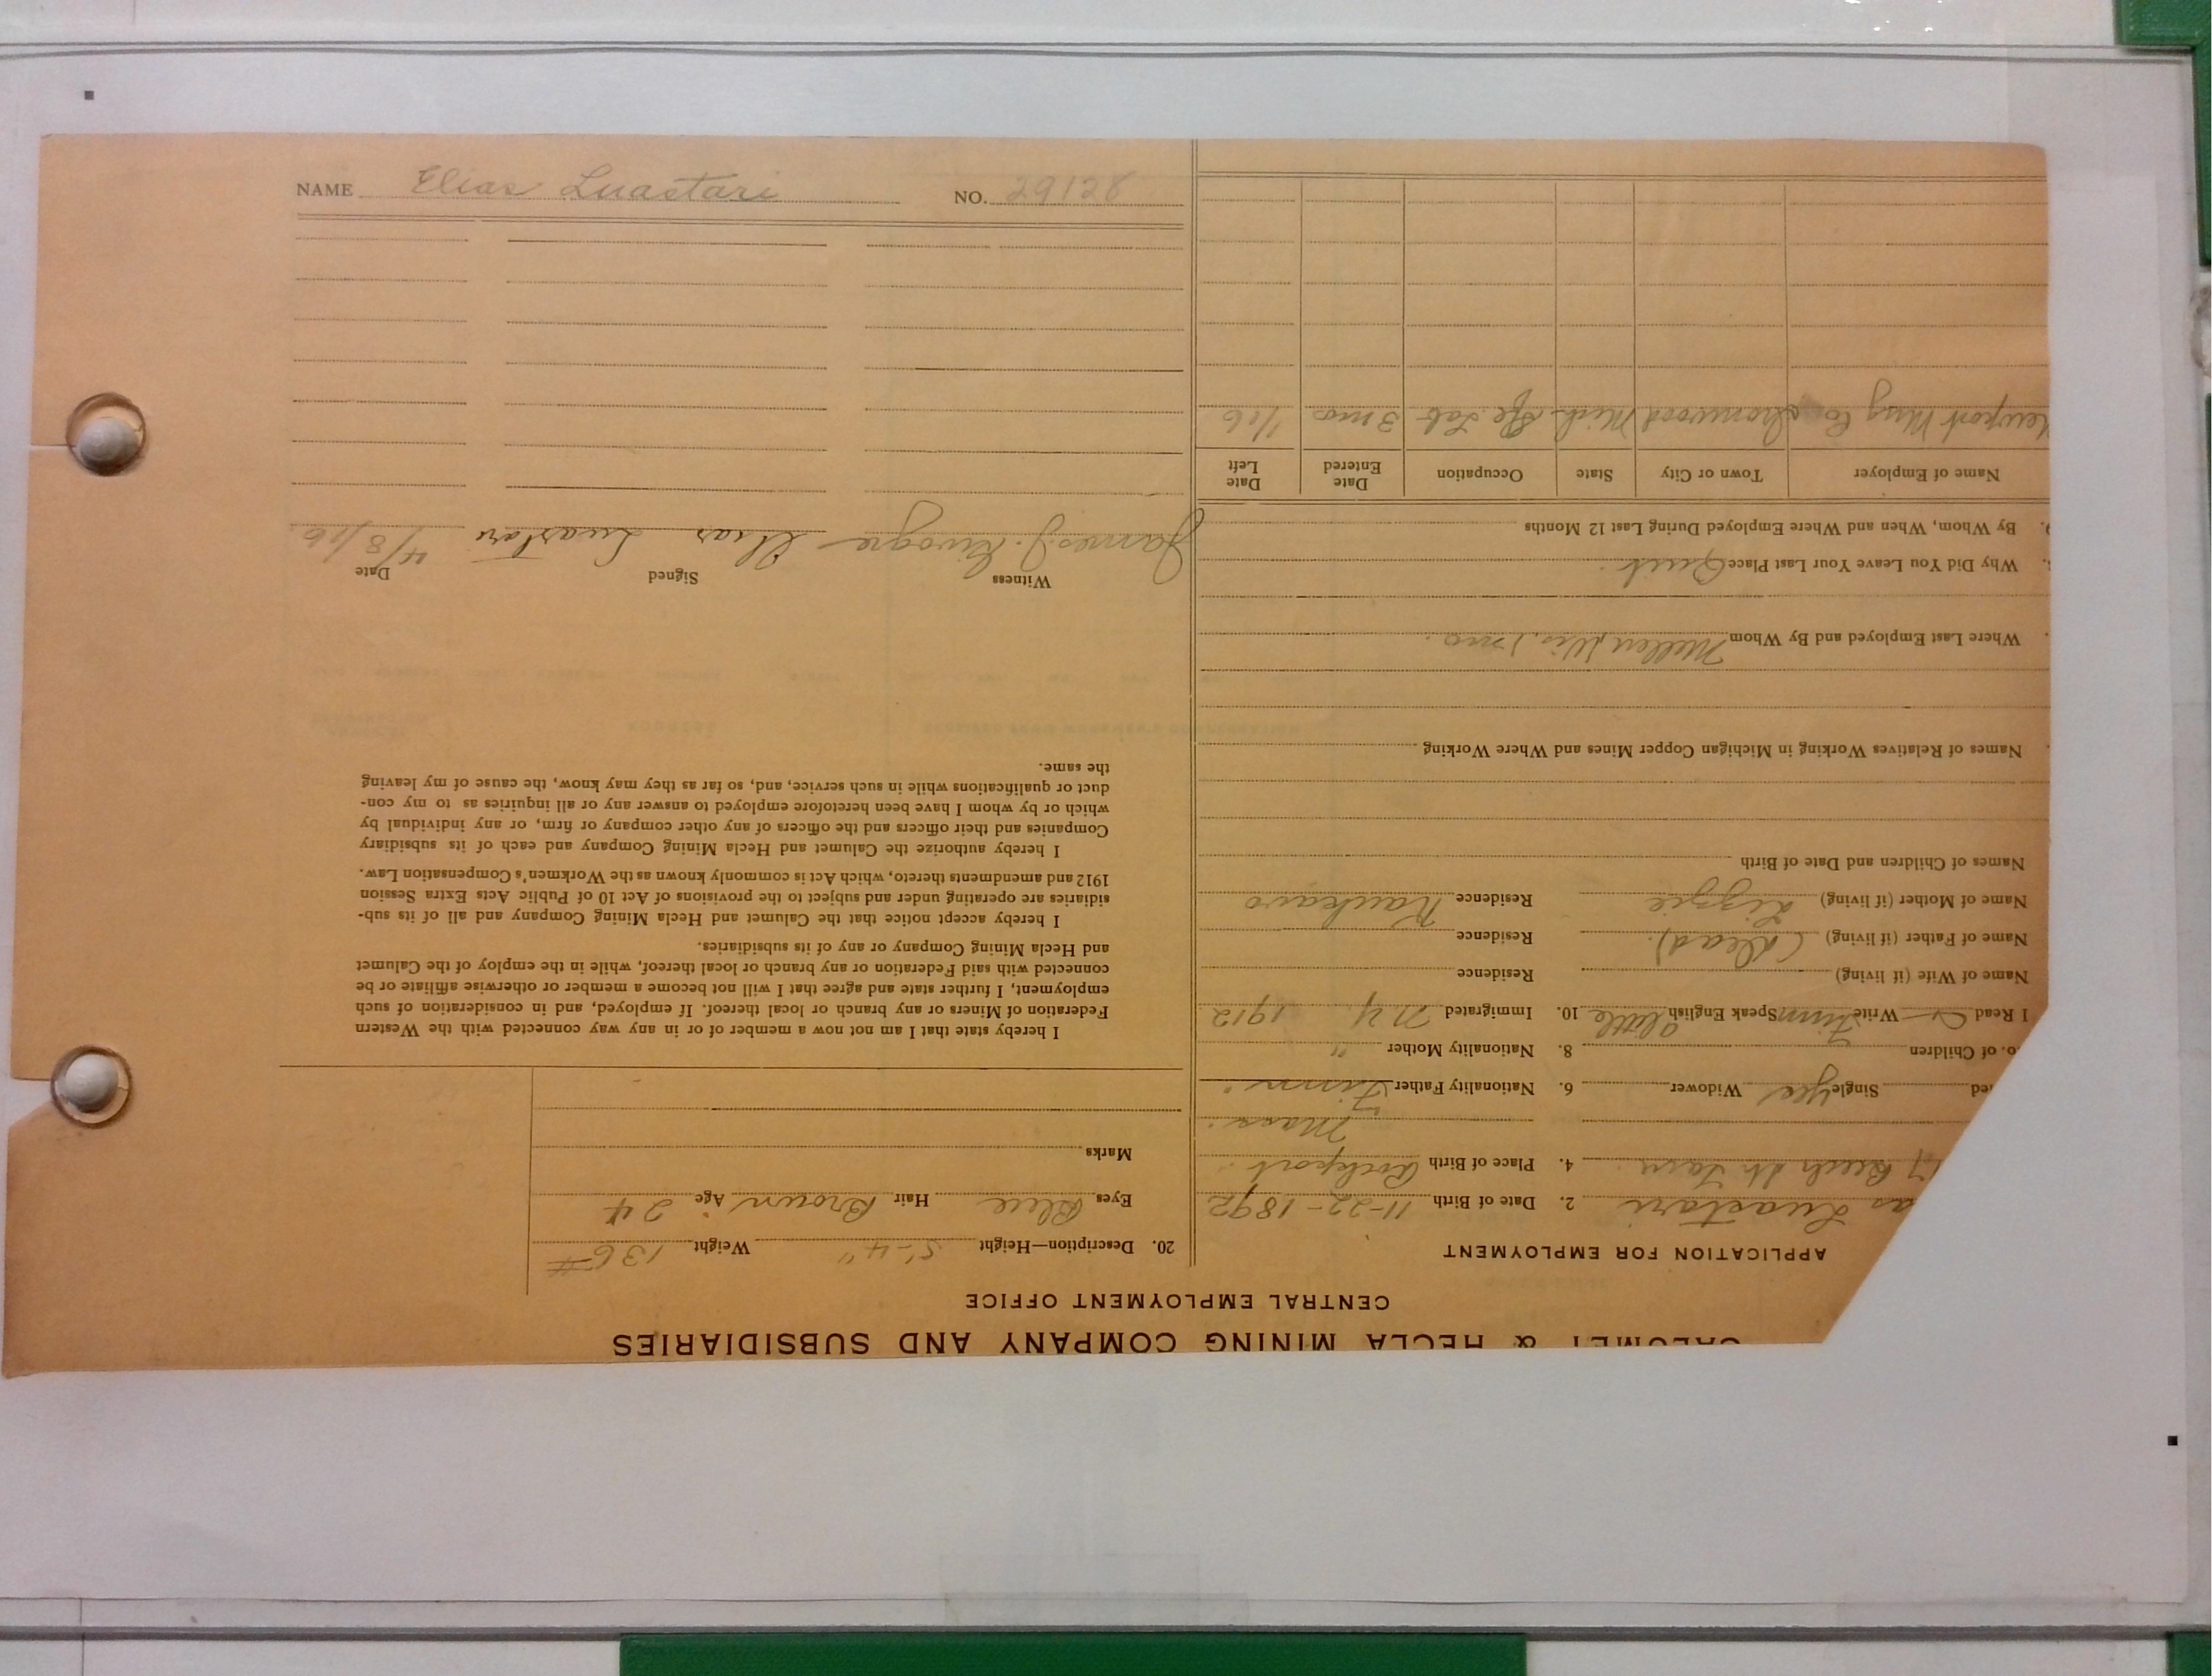 NAME Elias Luastari NO. 29128
CALUMET & HECLA MINING COMPANY AND SUBSIDIARIES
CENTRAL EMPLOYMENT OFFICE
APPLICATION FOR EMPLOYMENT
as Luastari 2. Date of Birth 11-22-1892
7 Beech St. 4. Place of Birth Rockport
Mass.
ed Single yes Widower 6. Nationality Father Finn.
o. of Children 8. Nationality Mother "
I Read Write Finn Speak English little 10. Immigrated N.Y. 1912
Name of Wife (if living) Residence
Name of Father (if living) (dead). Residence
Name of Mother (if living) Lizzie Residence
Names of Children and Date of Birth
Names of Relatives Working in Michigan Copper Mines and Where Working
Where Last Employed and By Whom Mellen Wis. 1 mo.
Why Did You Leave Your Last Place Quit.
By Whom, When and Where Employed During Last 12 Months
Name of Employer Town or City State Occupation Date Entered Date Left
Newport Mng Co Ironwood Mich Sfe Lab 3 mo 1/16
20. Description—Height 5'-4" Weight 136 #
Eyes Blue Hair Brown Age 24
Marks
I hereby state that I am not now a member of or in any way connected with the Western
Federation of Miners or any branch or local thereof. If employed, and in consideration of such
employment, I further state and agree that I will not become a member or otherwise affiliate or be
connected with said Federation or any branch or local thereof, while in the employ of the Calumet
and Hecla Mining Company or any of its subsidiaries.
I hereby accept notice that the Calumet and Hecla Mining Company and all of its sub-
sidiaries are operating under and subject to the provisions of Act 10 of Public Acts Extra Session
1912 and amendments thereto, which Act is commonly known as the Workmen's Compensation Law.
I hereby authorize the Calumet and Hecla Mining Company and each of its subsidiary
Companies and their officers and the officers of any other company or firm, or any individual by
which or by whom I have been heretofore employed to answer any or all inquiries as to my con-
duct or qualifications while in such service, and, so far as they may know, the cause of my leaving
the same.
Witness Signed Date
James J. Elias Luastari 4/8/16